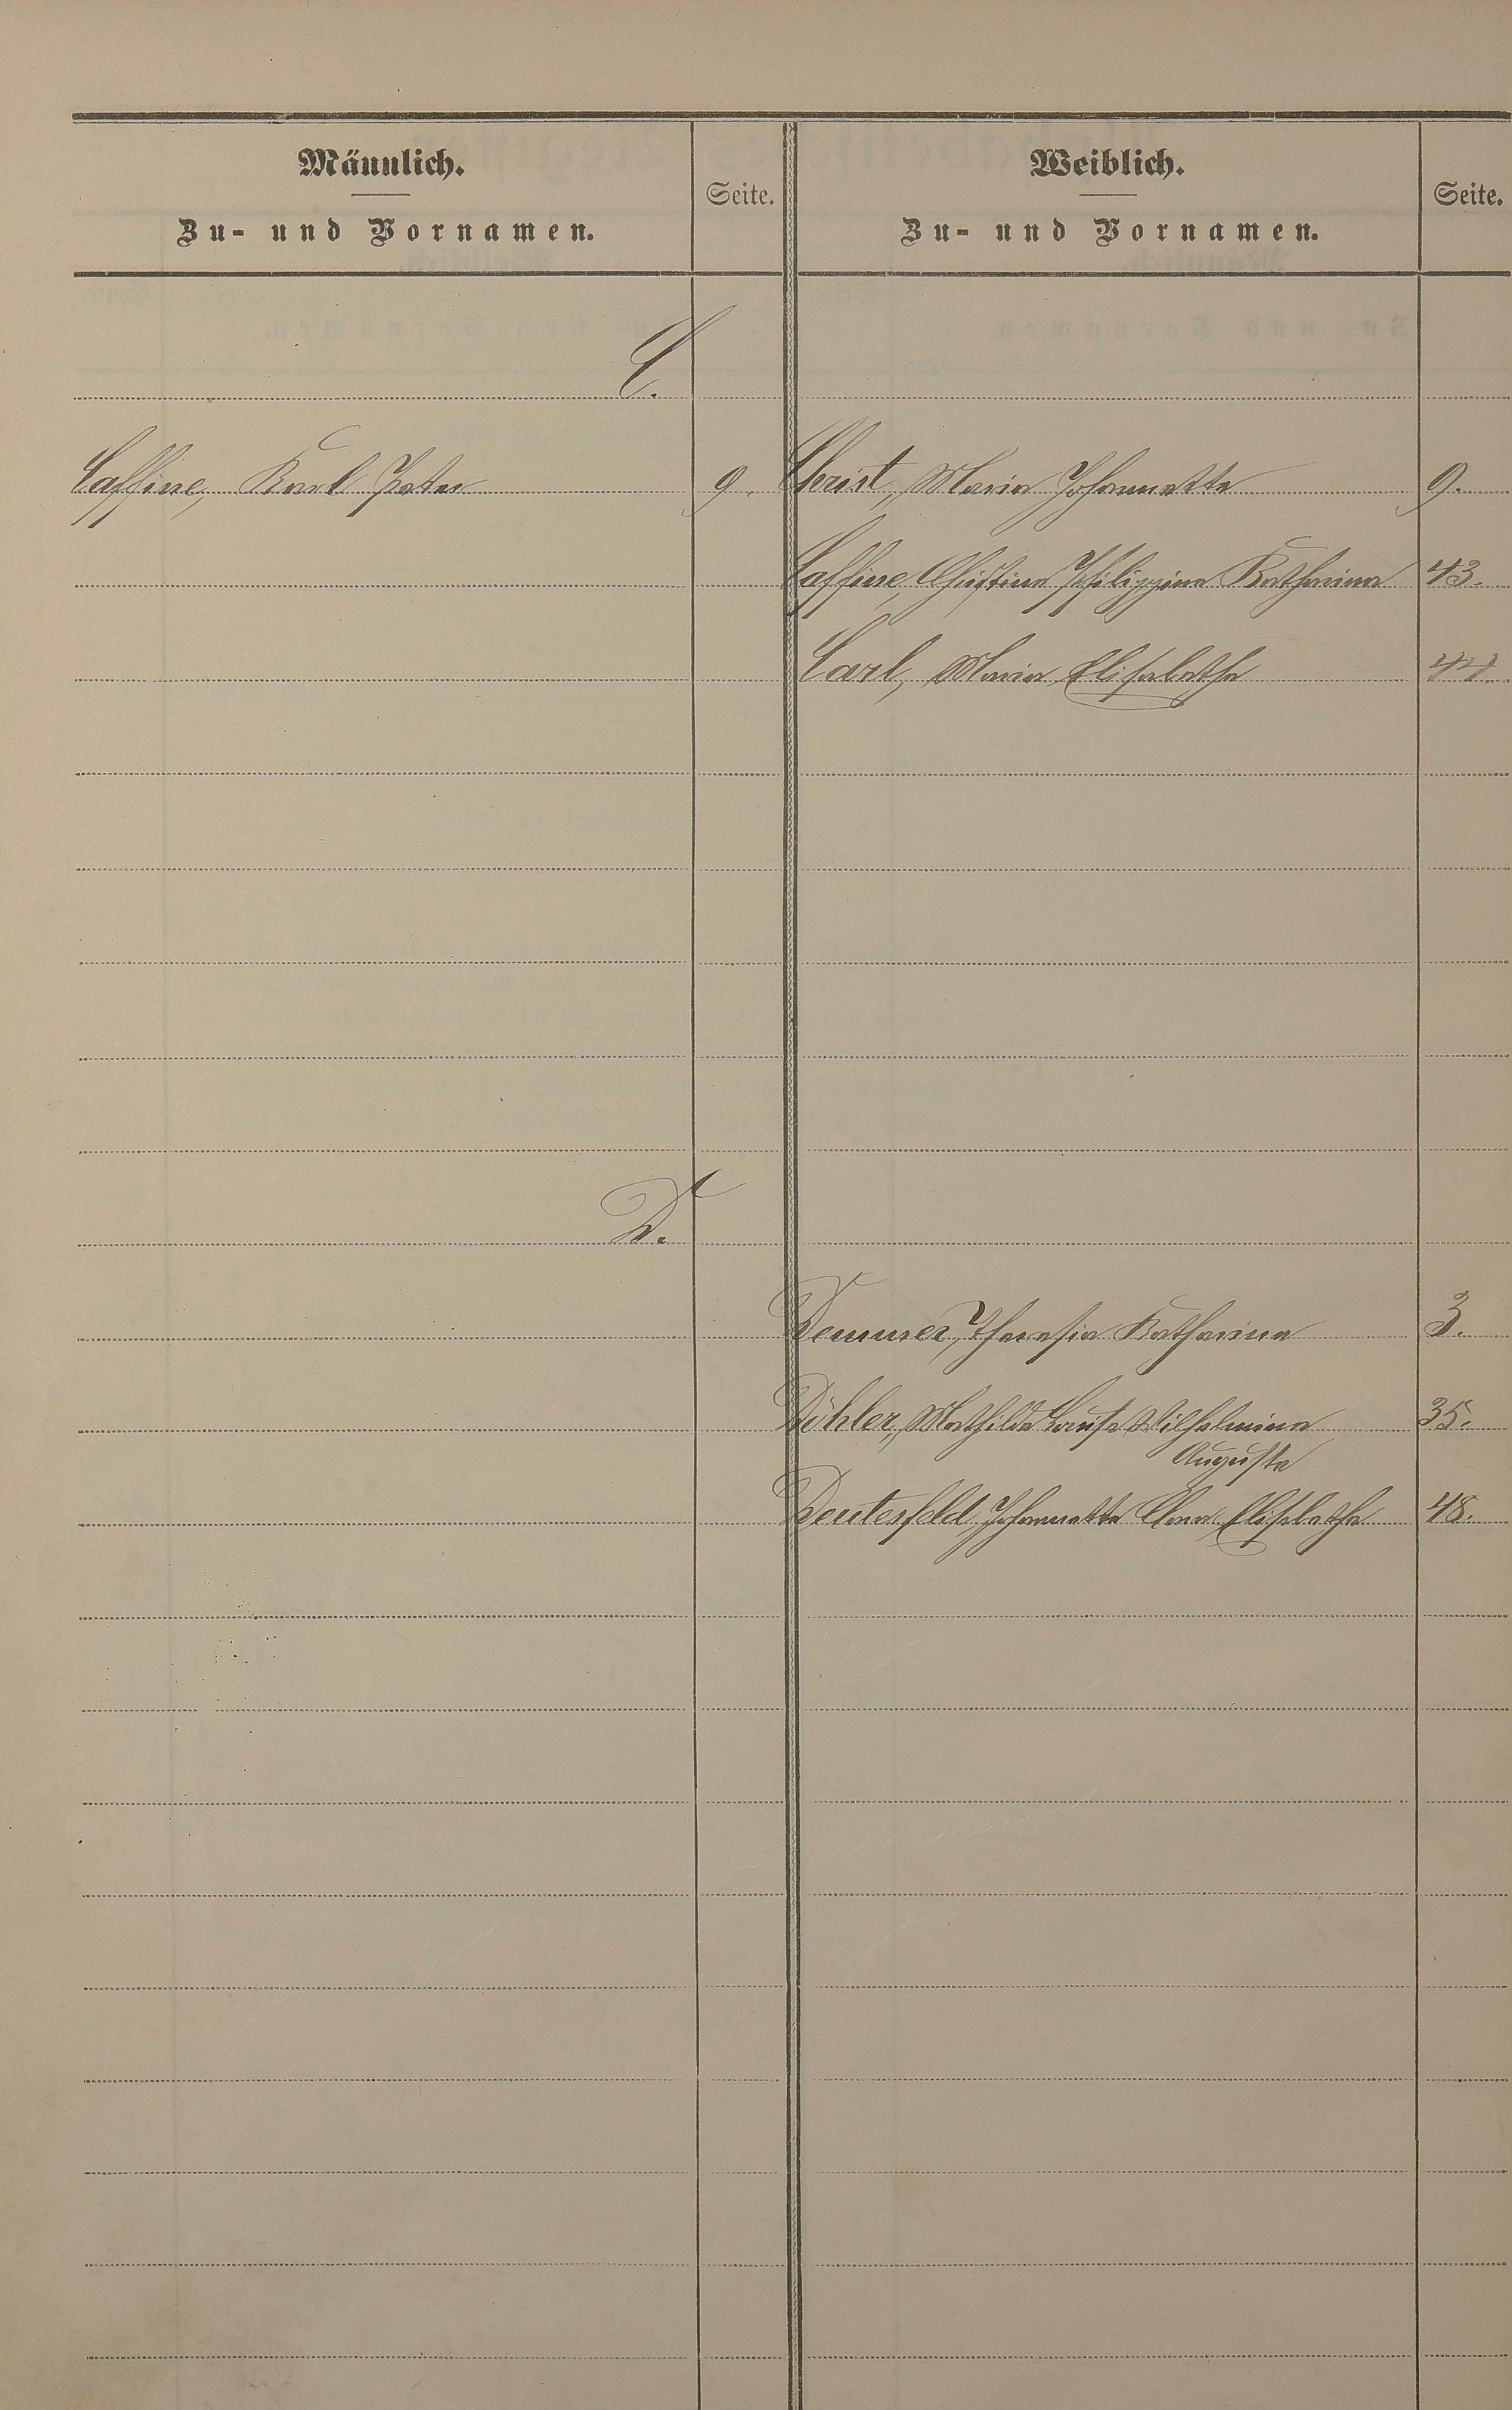 Männlich.
Zu- und Vornamen.
Seite.
Weiblich.
Zu- und Vornamen.
Seite.
C.
Caffine, Karl Peter 9. Christ, Maria Johannette 9.
Caffine, Christina Philippina Katharina 43.
Carl, Maria Elisabetha 44.
D.
Demmer, Theresia Katharina 3.
Döhler, Mathilda Louise Wilhelmina 35.
Auguste
Deutesfeld, Johannette Elisabetha 48.